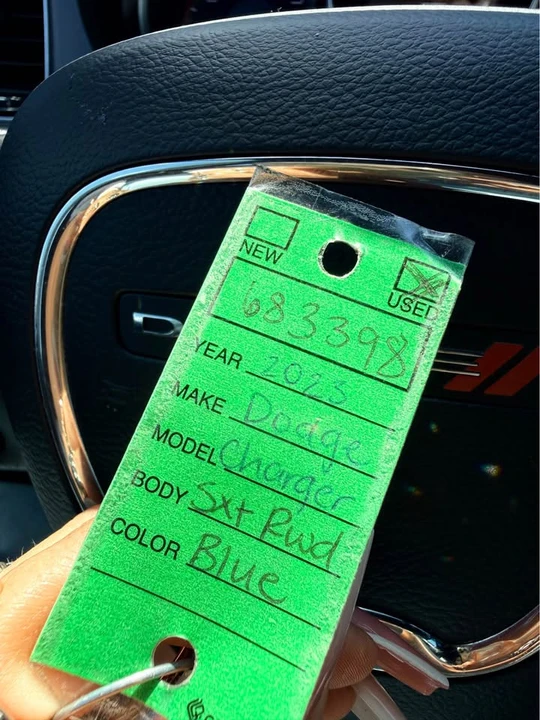 NEW
USED
683398
YEAR 2023
MAKE Dodge
MODEL Charger
BODY Sxt Rwd
COLOR Blue